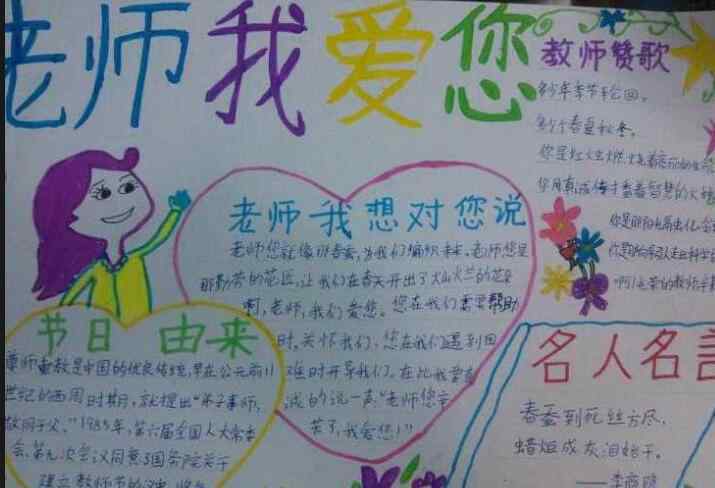 老师我爱您
教师赞歌
多少年季节轮回，
多少个春夏秋冬，
你是红烛燃烧着亮丽的生
您用真诚传播着智慧的火
你是
你是
啊!
老师我想对您说
老师您就像 为我们编织未来，老师您是
那勤劳的花匠，让我们在春天开出了 的花朵
啊，老师，我们爱您。您在我们需要帮助
时，关怀我们，您在我们遇到困
难时开导我们，在此我要真
诚的说一声“老师您辛
苦了，我爱您!”
节日由来
尊师重教是中国的优良传统，早在公元前11
世纪的西周时期，就提出“弟子事师，
敬同于父。”1985年，第六届全国人大常委
会第九次会议同意了国务院关于
建立教师节的
名人名言
春蚕到死丝方尽，
蜡炬成灰泪始干。
——李商隐